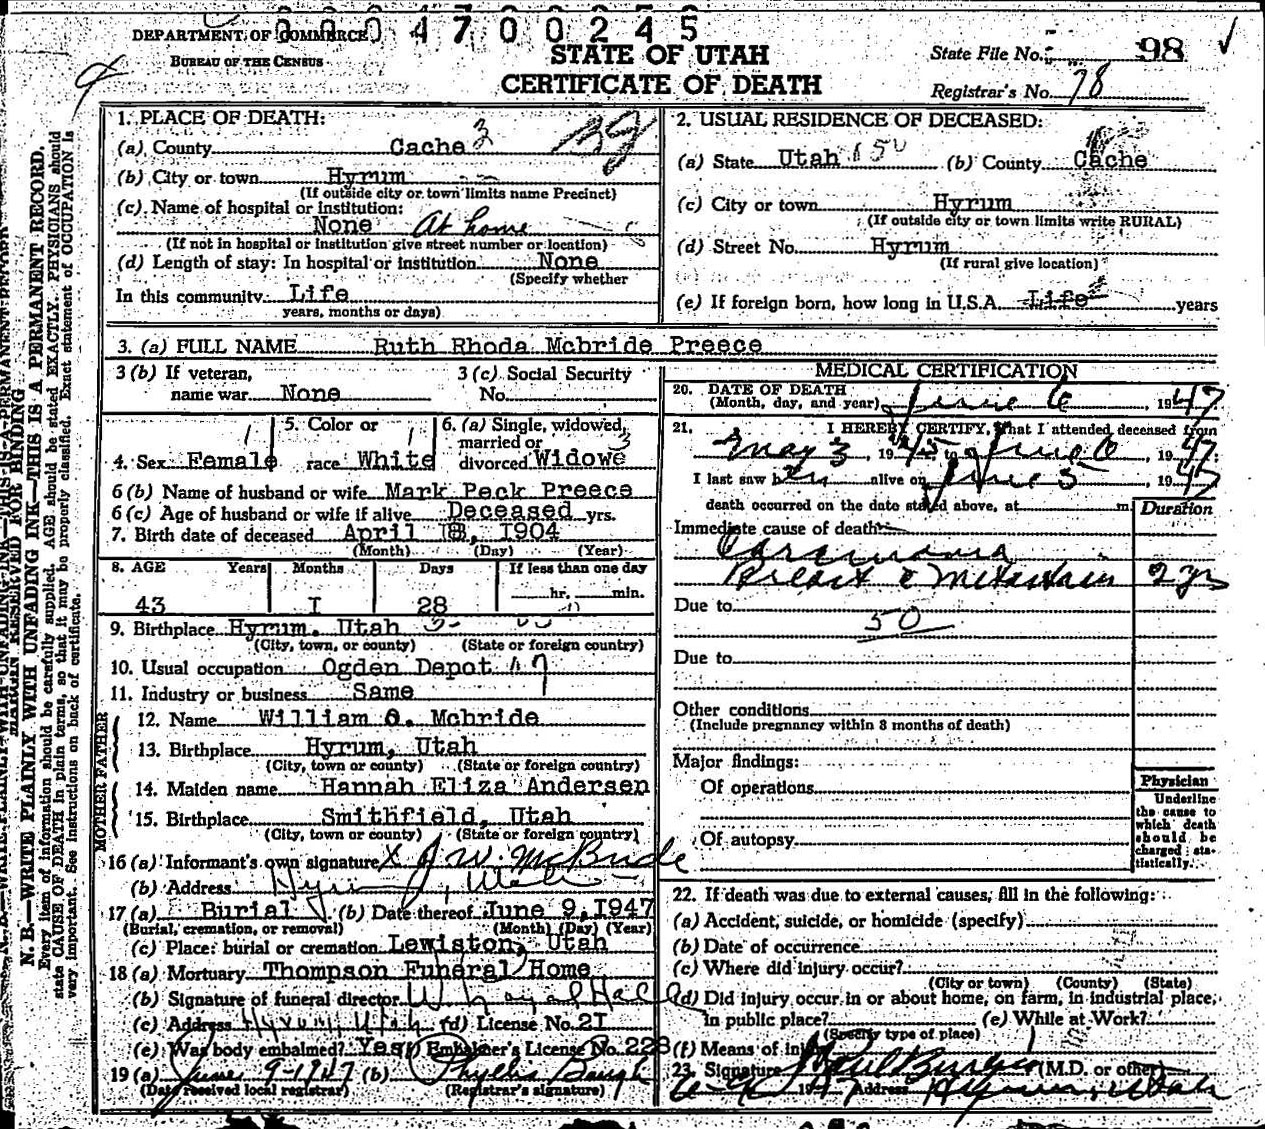 0004700245
DEPARTMENT OF COMMERCE
BUREAU OF THE CENSUS
STATE OF UTAH
CERTIFICATE OF DEATH
State File No. 98
Registrar's No. 78
N. B.—WRITE PLAINLY WITH UNFADING INK—THIS IS A PERMANENT RECORD.
Every item of information should be carefully supplied. AGE should be stated EXACTLY. PHYSICIANS should
state CAUSE OF DEATH in plain terms, so that it may be properly classified. Exact statement of OCCUPATION is
very important. See instructions on back of certificate.
MARGIN RESERVED FOR BINDING
1. PLACE OF DEATH:
(a) County Cache 3
(b) City or town Hyrum
(If outside city or town limits name Precinct)
(c) Name of hospital or institution:
None At home
(If not in hospital or institution give street number or location)
(d) Length of stay: In hospital or institution None
(Specify whether
In this community Life
years, months or days)
2. USUAL RESIDENCE OF DECEASED:
(a) State Utah 150 (b) County Cache
(c) City or town Hyrum
(If outside city or town limits write RURAL)
(d) Street No. Hyrum
(If rural give location)
(e) If foreign born, how long in U.S.A. Life years
3. (a) FULL NAME Ruth Rhoda Mcbride Preece
3 (b) If veteran, name war None
3 (c) Social Security No.
4. Sex Female
5. Color or race White
6. (a) Single, widowed, married or divorced Widowe
6 (b) Name of husband or wife Mark Peck Preece
6 (c) Age of husband or wife if alive Deceased yrs.
7. Birth date of deceased April 18, 1904
(Month) (Day) (Year)
8. AGE Years Months Days If less than one day
43 I 28 hr. min.
9. Birthplace Hyrum. Utah
(City, town, or county) (State or foreign country)
10. Usual occupation Ogden Depot
11. Industry or business Same
FATHER
12. Name William O. Mcbride
13. Birthplace Hyrum, Utah
(City, town or county) (State or foreign country)
MOTHER
14. Maiden name Hannah Eliza Andersen
15. Birthplace Smithfield, Utah
(City, town or county) (State or foreign country)
16 (a) Informant's own signature X J W. McBride
(b) Address Hyrum, Utah
17 (a) Burial (b) Date thereof June 9, 1947
(Burial, cremation, or removal) (Month) (Day) (Year)
(c) Place: burial or cremation Lewiston, Utah
18 (a) Mortuary Thompson Funeral Home
(b) Signature of funeral director
(c) Address Hyrum, Utah (d) License No. 2I
(e) Was body embalmed? Yes Embalmer's License No. 228
19 (a) June 9-1947 (b) Phyllis Baugh
(Date received local registrar) (Registrar's signature)
MEDICAL CERTIFICATION
20. DATE OF DEATH
(Month, day, and year) June 6, 1947
21. I HEREBY CERTIFY, that I attended deceased from
May 3, 1945 to June 6 1947
I last saw her alive on June 5, 1947
death occurred on the date stated above, at m.
Duration
Immediate cause of death
Carcinoma
Breast c Metastasis 2 yrs
Due to
50
Due to
Other conditions
(Include pregnancy within 3 months of death)
Major findings:
Of operations
Of autopsy
Physician
Underline
the cause to
which death
should be
charged sta-
tistically.
22. If death was due to external causes, fill in the following:
(a) Accident, suicide, or homicide (specify)
(b) Date of occurrence
(c) Where did injury occur?
(City or town) (County) (State)
(d) Did injury occur in or about home, on farm, in industrial place,
in public place? (e) While at Work?
(Specify type of place)
(f) Means of injury
23. Signature (M.D. or other)
1947 Address Hyrum, Utah